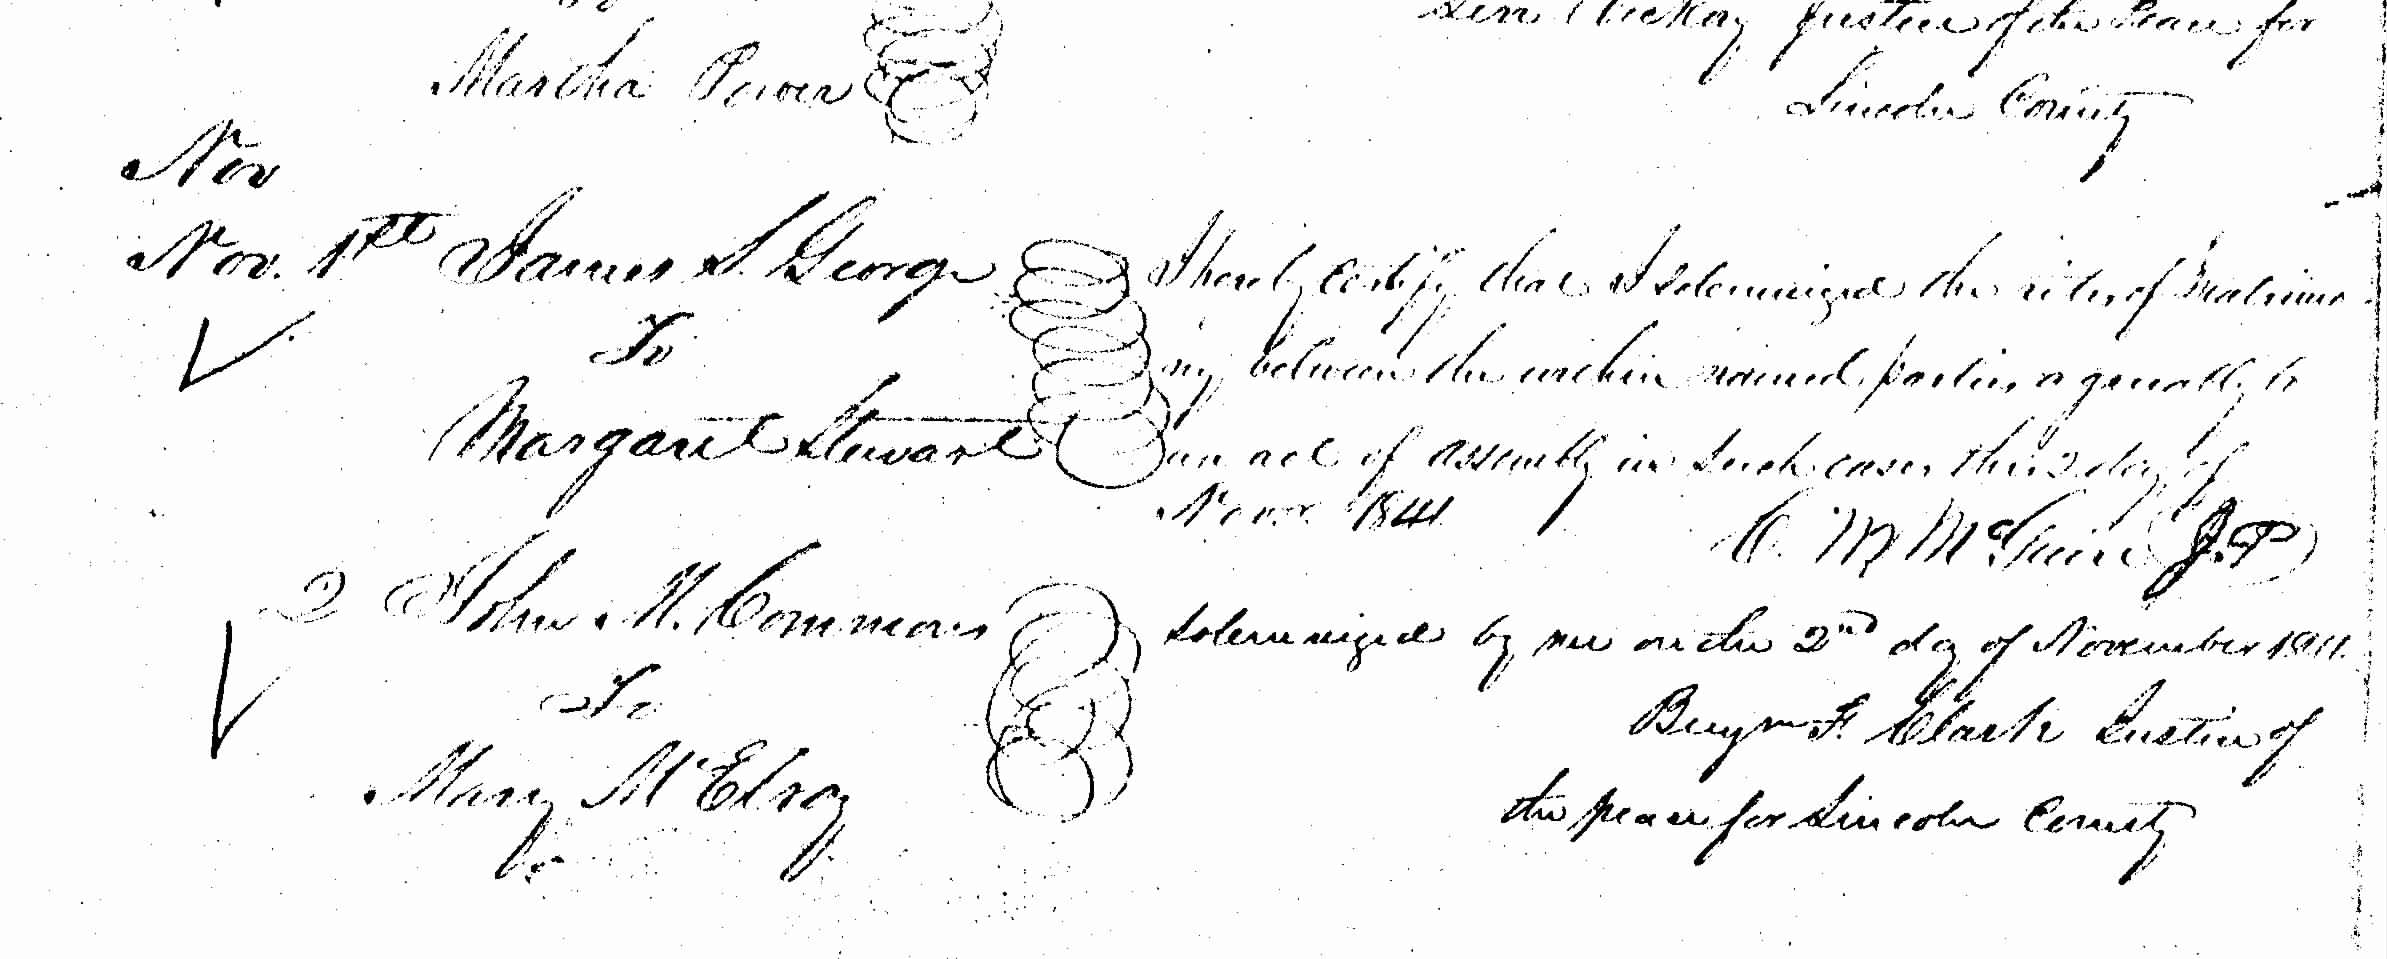 Justice of the Peace for
Martha Power
Lincoln County
Nov
Nov. 1st James S. George
To
Margaret Stewart
I hereby certify that I solemnized the rites of Matrimo-
ny between the within named parties agreeably to
an act of assembly in such cases this 2 day of
Novr 1841
C. M McGuire (J.P)
2 John N. Commons
To
Mary McElroy
Solemnized by me on the 2nd day of November 1841.
Benjn F. Clark Justice of
the peace for Lincoln County